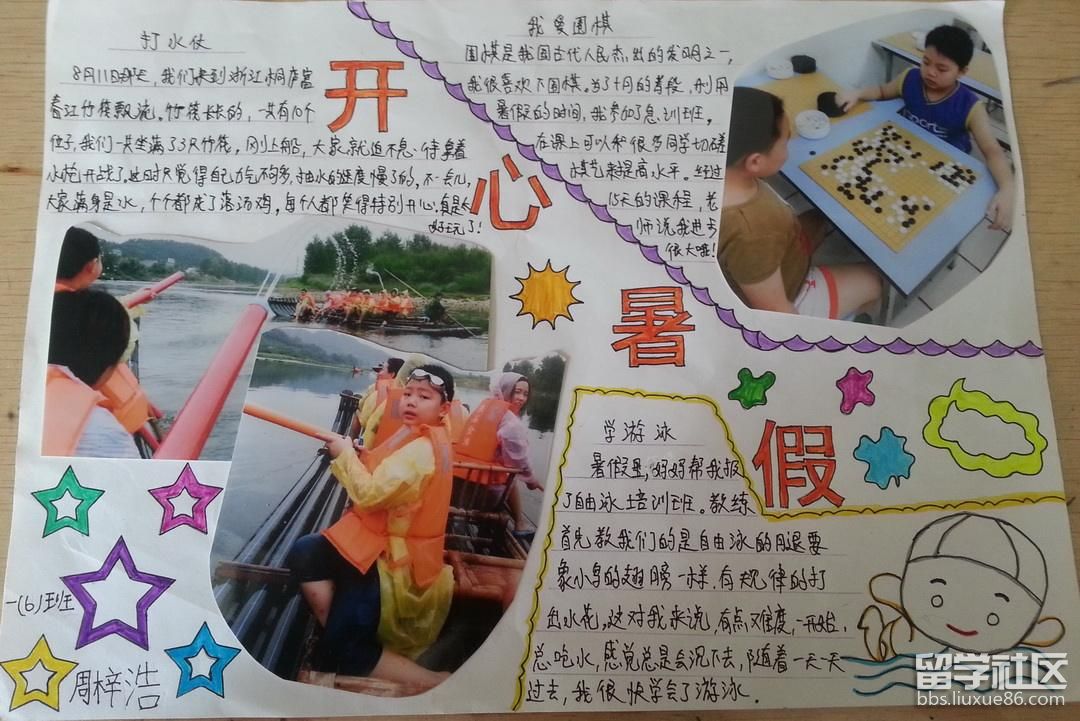 打水仗
8月11日那天，我们来到浙江桐庐富
春江竹筏飘流。竹筏长长的，一共有10个
位子，我们一共坐满了3只竹筏，刚上船，大家就迫不急待拿着
水炮开战了。这时只觉得自己力气不够多，抽水的速度慢了的，不一会儿，
大家满身是水，个个都成了落汤鸡，每个人都笑得特别开心，真是太
好玩了！
我爱围棋
围棋是我国古代人民杰出的发明之一，
我很喜欢下围棋。为了十月的考段，利用
暑假的时间，我参加了急训班。
在课上可以和很多同学切磋
棋艺来提高水平。经过
15天的课程，老
师说我进步
很大哦！
开
心
暑
假
学游泳
暑假里，好好帮我报
了自由泳培训班。教练
首先教我们的是自由泳的用腿要
象小鸟的翅膀一样，有规律的打
出水花，这对我来说，有点难度，一开始，
总吃水，感觉总是会沉下去，随着一天一天
过去，我很快学会了游泳．
一(6)班
周梓浩
留学社区
bbs.liuxue86.com